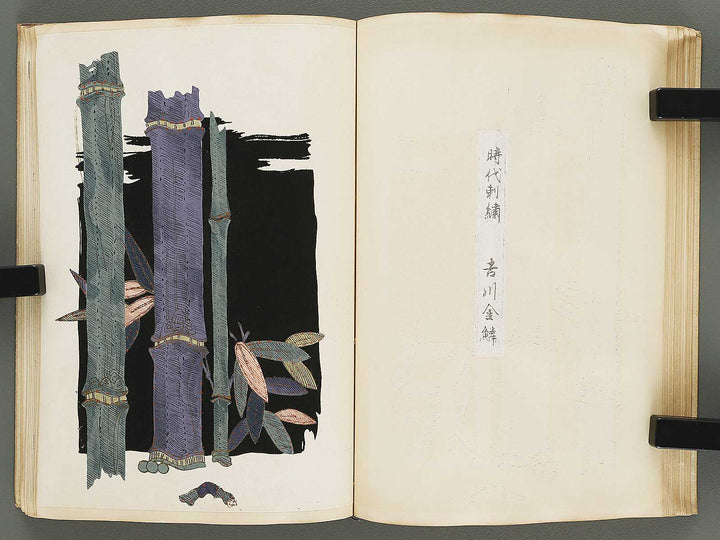 時代刺繍 吉川金鱗